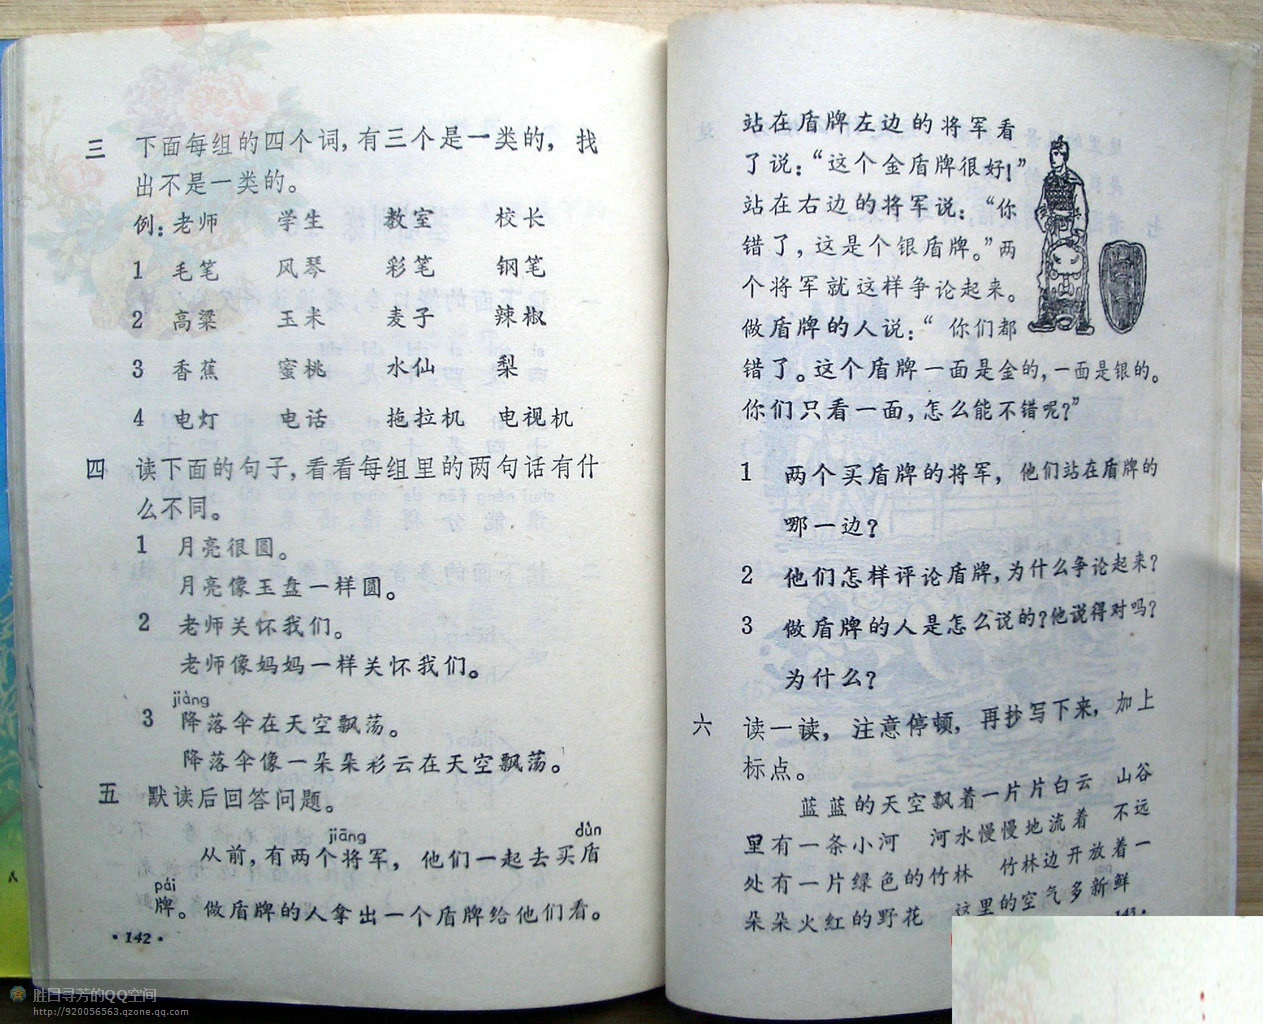 三 下面每组的四个词,有三个是一类的,找
出不是一类的。
例:老师 学生 教室 校长
1 毛笔 风琴 彩笔 钢笔
2 高粱 玉米 麦子 辣椒
3 香蕉 蜜桃 水仙 梨
4 电灯 电话 拖拉机 电视机
四 读下面的句子,看看每组里的两句话有什
么不同。
1 月亮很圆。
月亮像玉盘一样圆。
2 老师关怀我们。
老师像妈妈一样关怀我们。
jiàng
3 降落伞在天空飘荡。
降落伞像一朵朵彩云在天空飘荡。
五 默读后回答问题。
jiāng dùn
从前,有两个将军,他们一起去买盾
pái
牌。做盾牌的人拿出一个盾牌给他们看。
·142·
站在盾牌左边的将军看
了说:“这个金盾牌很好!”
站在右边的将军说:“你
错了,这是个银盾牌。”两
个将军就这样争论起来。
做盾牌的人说:“你们都
错了。这个盾牌一面是金的,一面是银的。
你们只看一面,怎么能不错呢?”
1 两个买盾牌的将军,他们站在盾牌的
哪一边?
2 他们怎样评论盾牌,为什么争论起来?
3 做盾牌的人是怎么说的?他说得对吗?
为什么?
六 读一读,注意停顿,再抄写下来,加上
标点。
蓝蓝的天空飘着一片片白云 山谷
里有一条小河 河水慢慢地流着 不远
处有一片绿色的竹林 竹林边开放着一
朵朵火红的野花 这里的空气多新鲜
143·
胜日寻芳的QQ空间
http://920056563.qzone.qq.com